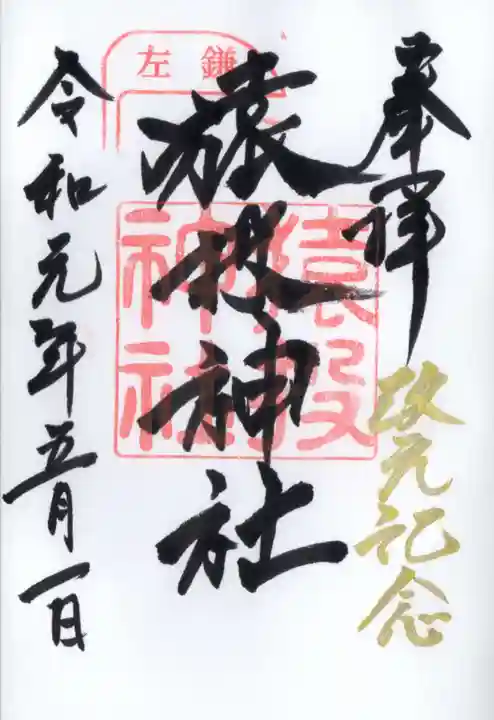 奉拝
改元記念
猿投神社
左鎌
猿投神社
令和元年五月一日